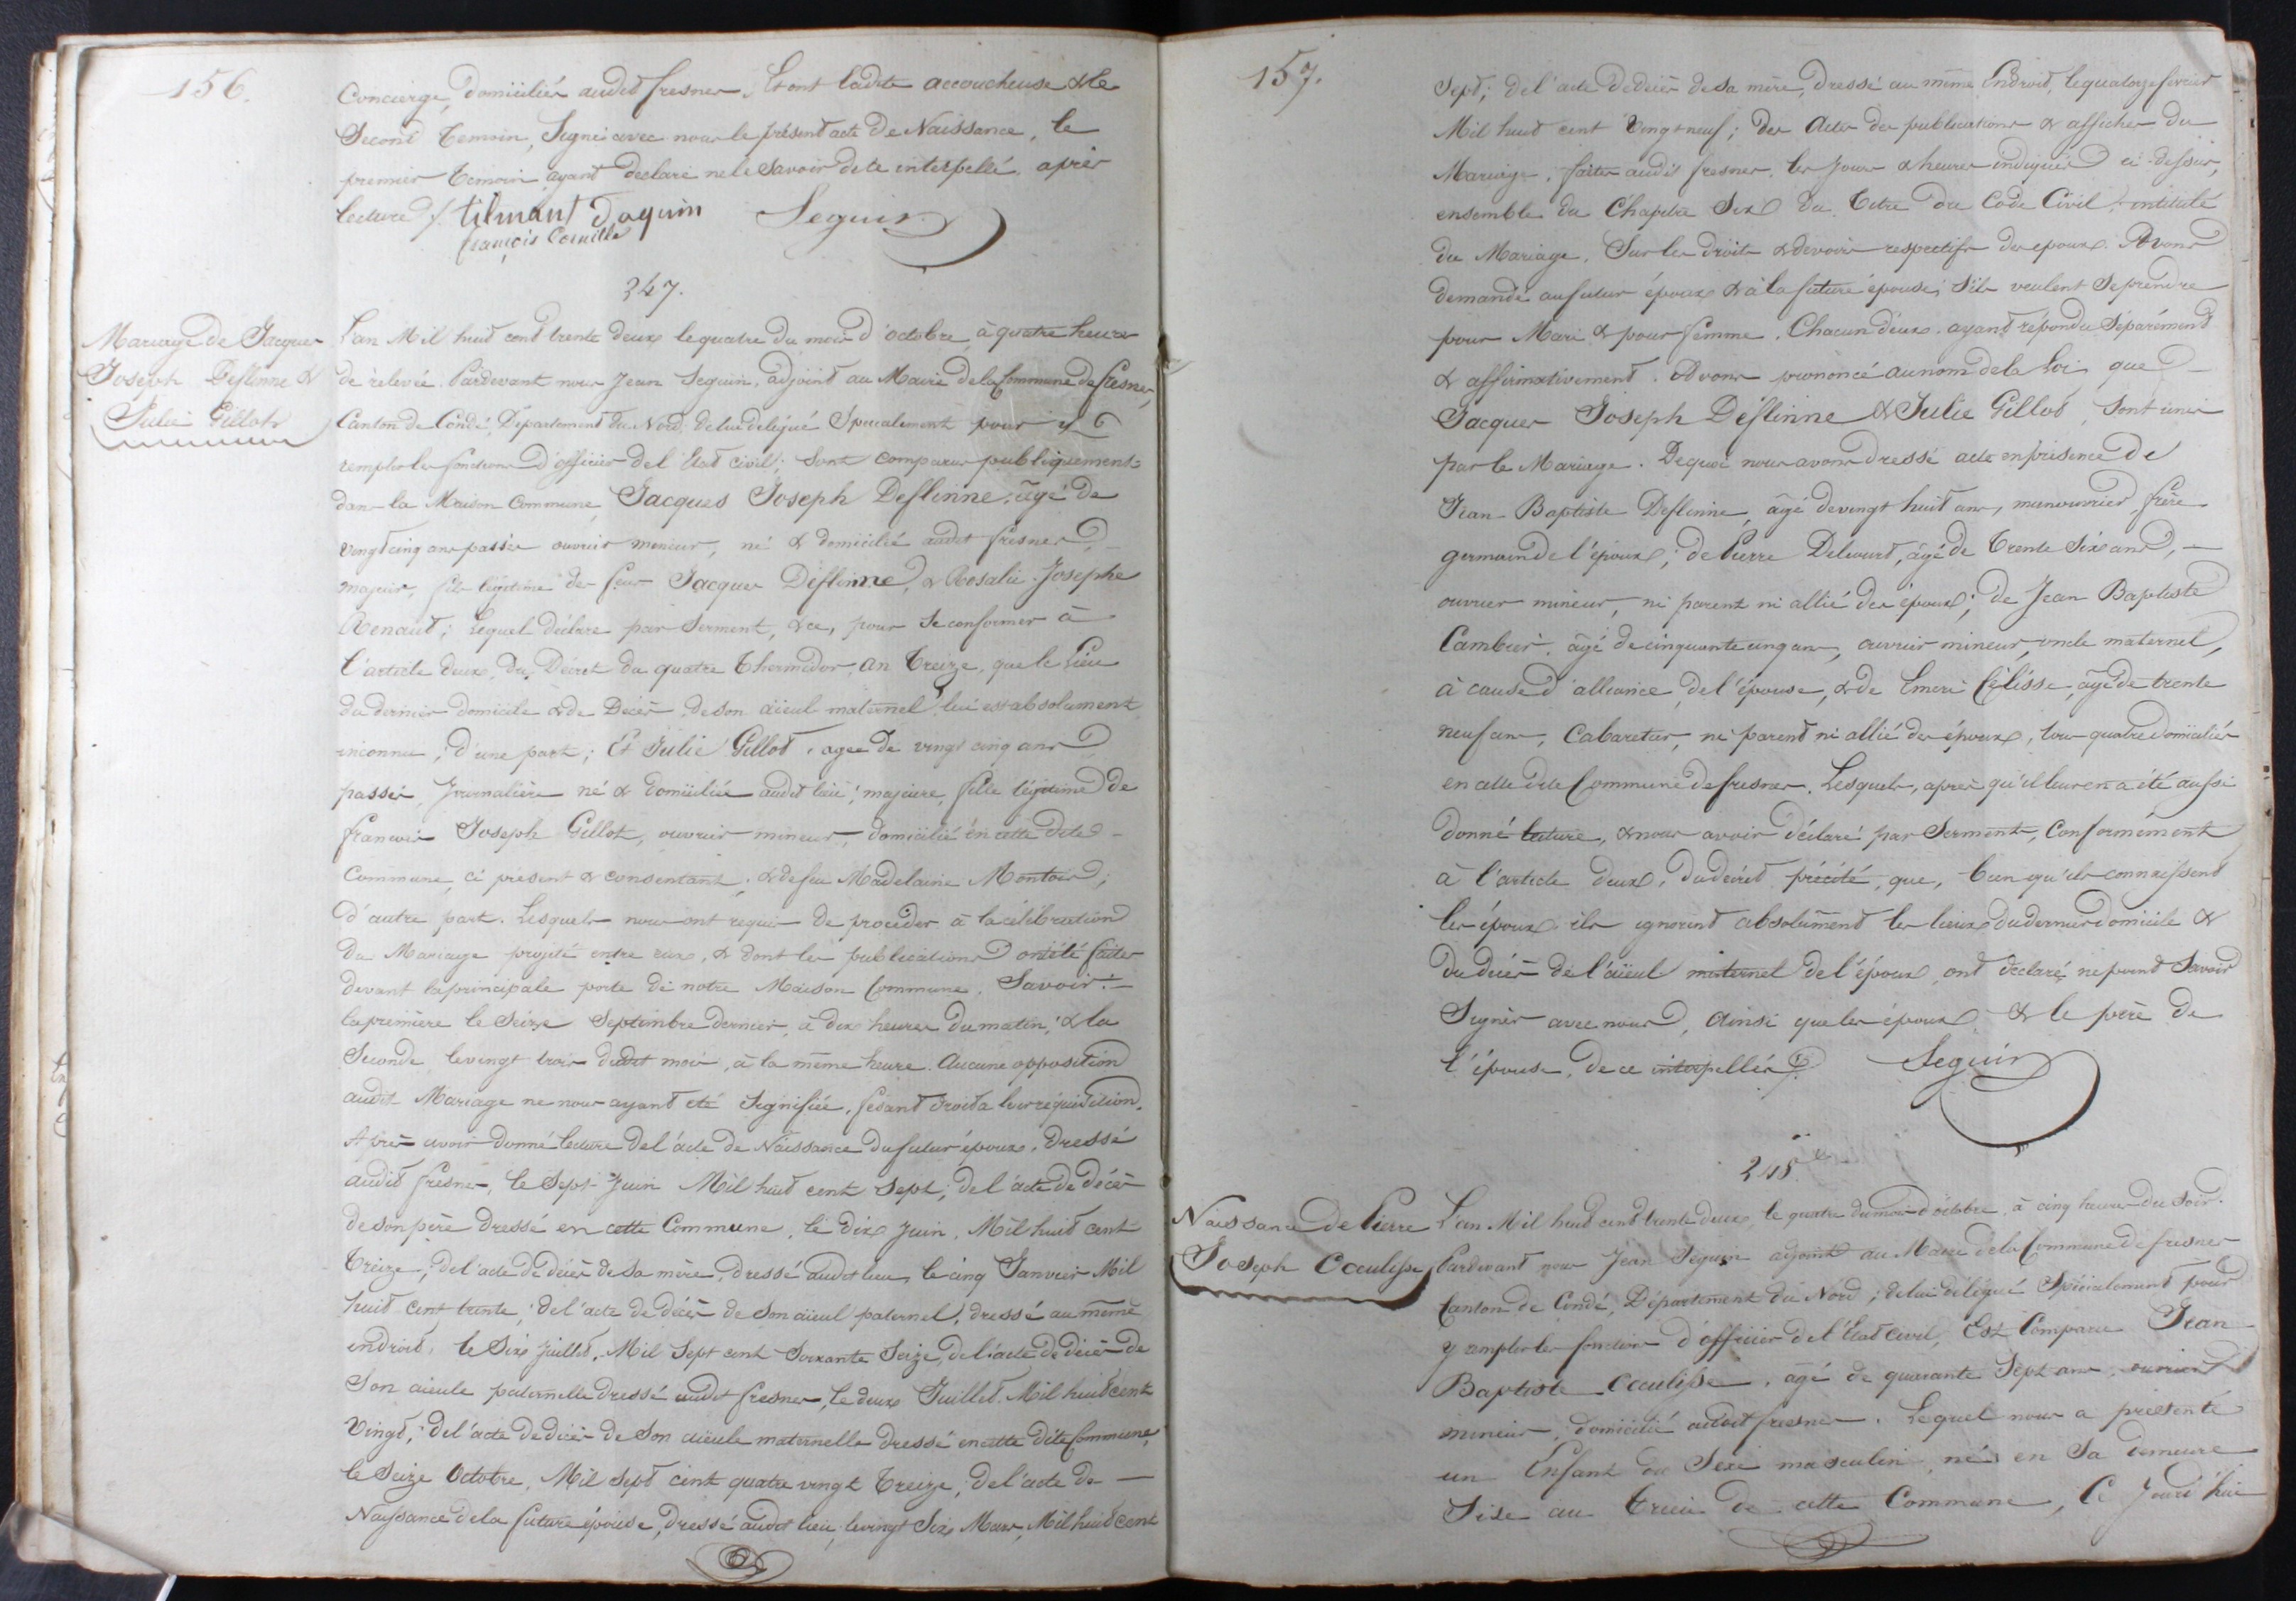 156.
Concierge, domicilié audit fresnes. Et ont ladite accoucheuse & le
Second temoin, Signé avec nous le présent acte de Naissance, le
premier temoin ayant declaré ne le Savoir de ce interpellé, après
lecture /. tilmant Daquin Seguin
françois Cornille
247.
Mariage de Jacques
Joseph Deflinne &
Julie Gillot
L'an Mil huit cent trente deux le quatre du mois d'octobre, à quatre heures
de relevée. Pardevant nous Jean Seguin, adjoint au Maire de la Commune de fresnes,
Canton de Condé, Département du Nord, de lui delégué Specialement pour y
remplir les fonctions d'officier de l'Etat civil; Sont comparus publiquement
dans la Maison Commune Jacques Joseph Deflinne, âgé de
vingt cinq ans passés ouvrier mineur, né & domicilié audit fresnes,
majeur, fils légitime des feus Jacques Déflinne, & Rosalie Josephe
Renaut; Lequel déclare par Serment, & ce, pour se conformer à
l'article deux, du Décret du quatre Thermidor an treize, que le lieu
du dernier domicile & de Décès, de son aïeul maternel lui est absolument
inconnu; d'une part; Et Julie Gillot, agée de vingt cinq ans
passés, Journalière né & domiciliée audit lieu, majeure, fille légitime de
francois Joseph Gillot, ouvrier mineur, domicilié en cette dite
Commune, ci présent & consentant; & de feu Madelaine Montois;
d'autre part. Lesquels nous ont requis de procéder à la célébration
du Mariage projeté entre eux, & dont les publications ont été faites
devant la principale porte de notre Maison Commune. Savoir:
la première le Seize Septembre dernier, à dix heures du matin, & la
Seconde le vingt trois dudit mois, à la même heure. Aucune opposition
audit Mariage ne nous ayant été Signifiée, fesant droit à leur réquisition.
Après avoir donné lecture de l'acte de Naissance du futur époux, dressé
audit fresnes, le Sept Juin Mil huit cent Sept; de l'acte de décès
de son père dressé en cette Commune, le dix Juin, Mil huit cent
treize; de l'acte de décès de Sa mère, dressé audit lieu, le cinq Janvier Mil
huit cent trente; de l'acte de décès de Son aïeul paternel, dressé au même
endroit, le Six Juillet, Mil Sept cent Soixante Seize, de l'acte de décès de
Son aieule paternelle dressé audit fresnes, le deux Juillet Mil huit cent
Vingt; de l'acte de décès de Son aïeule maternelle dressé en cette dite Commune,
le Seize Octobre, Mil Sept cent quatre vingt treize; de l'acte de
Naissance de la future épouse, dressé audit lieu, le vingt Six Mars, Mil huit cent
157.
Sept; de l'acte de décès de Sa mère, dressé au même Endroit, le quatorze fevrier
Mil huit cent Vingt neuf; des Actes des publications & affiches du
Mariage, faites audit fresnes, les Jours & heures indiqués ci-dessus,
ensemble du Chapitre Six du titre du Code Civil, intitulé
du Mariage, Sur les droits & devoirs respectifs des epoux. Avons
demandé au futur époux & à la future épouse, S'ils veulent Se prendre
pour Mari & pour femme. Chacun d'eux ayant répondu Séparément
& affirmativement. Avons prononcé au nom de la Loi, que
Jacques Joseph Déflinne & Julie Gillot, Sont unis
par le Mariage. De quoi nous avons dressé acte en présence de
Jean-Baptiste Deflinne, âgé de vingt huit ans, manouvrier, frère
germain de l'époux; de Pierre Délcourt, âgé de trente Six ans,
ouvrier mineur, ni parent ni allié des époux; de Jean Baptiste
Cambier, âgé de cinquante cinq ans, ouvrier mineur, oncle maternel,
à cause d'alliance, de l'épouse, & de Emeri Célisse, âgé de trente
neuf ans, Cabaretier, ni parent ni allié des époux, tous quatre domiciliés
en cette dite Commune de fresnes. Lesquels, après qu'il leur en a été aussi
donné lecture, & nous avoir déclaré par Serment, Conformément
à l'article deux, du décret précité, que, bien qu'ils connaissent
les époux, ils ignorent absolument les lieux du dernier domicile &
du décès de l'aïeul maternel de l'époux, ont déclaré ne point Savoir
Signer avec nous, ainsi que les époux & le père de
l'épouse, de ce interpellés /. Seguin
248.
Naissance de Pierre
Joseph Coculisse
L'an Mil huit cent trente deux, le quatre du mois d'octobre, à cinq heures du Soir.
Pardevant nous Jean Seguin adjoint au Maire de la Commune de fresnes
Canton de Condé, Département du Nord; de lui délégué Spécialement pour
y remplir les fonctions d'officier de l'Etat civil, Est Comparu Jean
Baptiste Coculisse, âgé de quarante Sept ans, ouvrier
mineur, domicilié audit fresnes. Lequel nous a présenté
un Enfant du Sexe masculin né en Sa demeure
Sise au trieu de cette Commune, Ce Jourd'hui